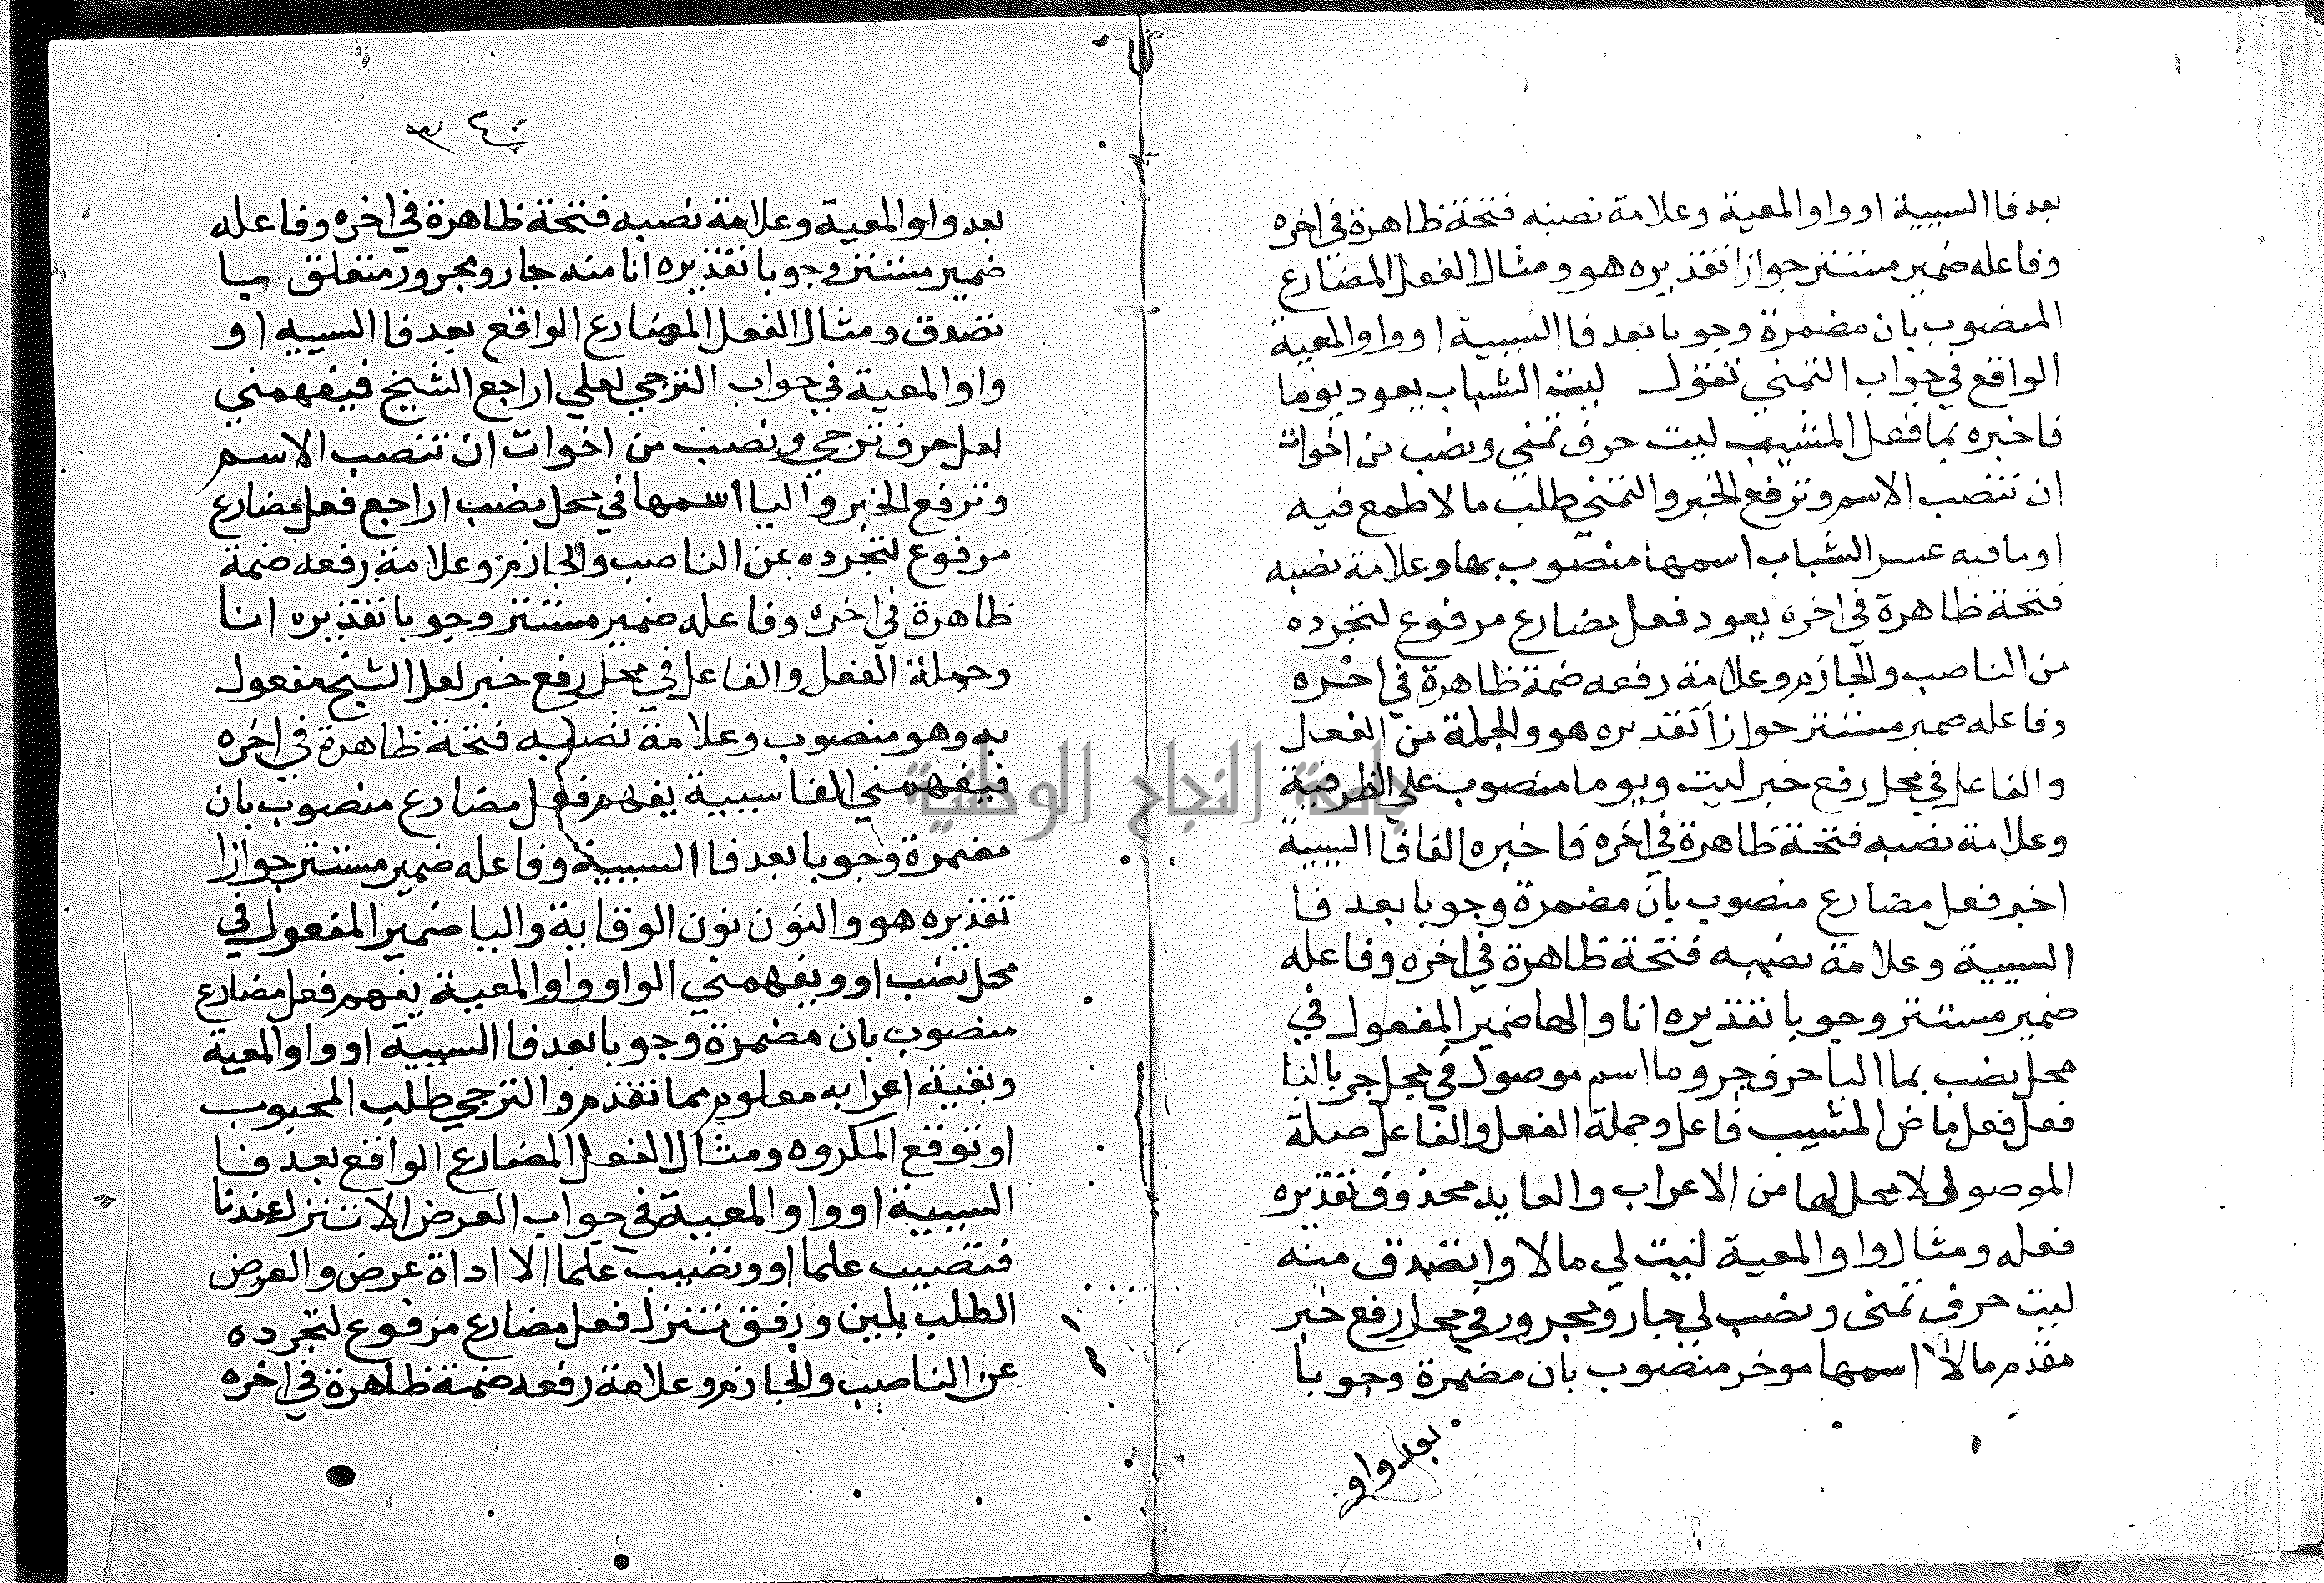 بعد فا السببية او واو المعية وعلامة نصبه فتحة ظاهرة في اخره
وفاعله ضمير مستتر جوازا تقديره هو ومثال الفعل المضارع
المنصوب بان مضمرة وجوبا بعد فا السببية او واو المعية
الواقع في جواب التمني تقول ليت الشباب يعود يوما
فاخبره بما فعل المشيب ليت حرف تمني ونصب من اخوات
ان تنصب الاسم وترفع الخبر والتمني طلب ما لا طمع فيه
او ما فيه عسر الشباب اسمها منصوب بها وعلامة نصبه
فتحة ظاهرة في اخره يعود فعل مضارع مرفوع لتجرده
من الناصب والجازم وعلامة رفعه ضمة ظاهرة في اخره
وفاعله ضمير مستتر جوازا تقديره هو والجملة من الفعل
والفاعل في محل رفع خبر ليت ويوما منصوب علي الظرفية
وعلامة نصبه فتحة ظاهرة في اخره فاخبره الفا فا السببية
اخبر فعل مضارع منصوب بان مضمرة وجوبا بعد فا
السببية وعلامة نصبه فتحة ظاهرة في اخره وفاعله
ضمير مستتر وجوبا تقديره انا والها ضمير المفعول في
محل نصب بما البا حرف جر وما اسم موصول في محل جر بالبا
فعل فعل ماض المشيب فاعل وجملة الفعل والفاعل صلة
الموصول لا محل لها من الاعراب والعايد محذوف تقديره
فعله ومثال واو المعية ليت لي مالا واتصدق منه
ليت حرف تمنى ونصب لي جار ومجرور في محل رفع خبر
مقدم مالا اسمها موخر منصوب بان مضمرة وجوبا
بعد واو
بعد واو المعية وعلامة نصبه فتحة ظاهرة في اخره وفاعله
ضمير مستتر وجوبا تقديره انا منه جار ومجرور متعلق
تصدق ومثال الفعل المضارع الواقع بعد فا السببيه او
واو المعية في جواب الترجي لعلي اراجع الشيخ فيفهمني
لعل حرف ترجي ونصب من اخوات ان تنصب الاسم
وترفع الخبر واليا اسمها في محل نصب اراجع فعل مضارع
مرفوع لتجرده عن الناصب والجازم وعلامة رفعه ضمة
ظاهرة في اخره وفاعله ضمير مستتر وجوبا تقديره انا
وجملة الفعل والفاعل في محل رفع خبر لعل الشيخ مفعول
به وهو منصوب وعلامة نصبه فتحة ظاهرة في اخره
فيفهمني الفا سببية يفهم فعل مضارع منصوب بان
مضمرة وجوبا بعد فا السببية وفاعله ضمير مستتر جوازا
تقديره هو والنون نون الوقاية واليا ضمير المفعول في
محل نصب او ويفهمني الواو واو المعية يفهم فعل مضارع
منصوب بان مضمرة وجوبا بعد فا السببية او واو المعية
وبقية اعرابه معلوم مما تقدم والترجي طلب المحبوب
او توقع المكروه ومثال الفعل المضارع الواقع بعد فا
السببية او واو المعية في جواب العرض الا تنزل عندنا
فتصيب علما او وتصيب علما الا اداة عرض والعرض
الطلب بلين ورفق تنزل فعل مضارع مرفوع لتجرده
عن الناصب والجازم وعلامة رفعه ضمة ظاهرة في اخره
جامعة النجاح الوطنية